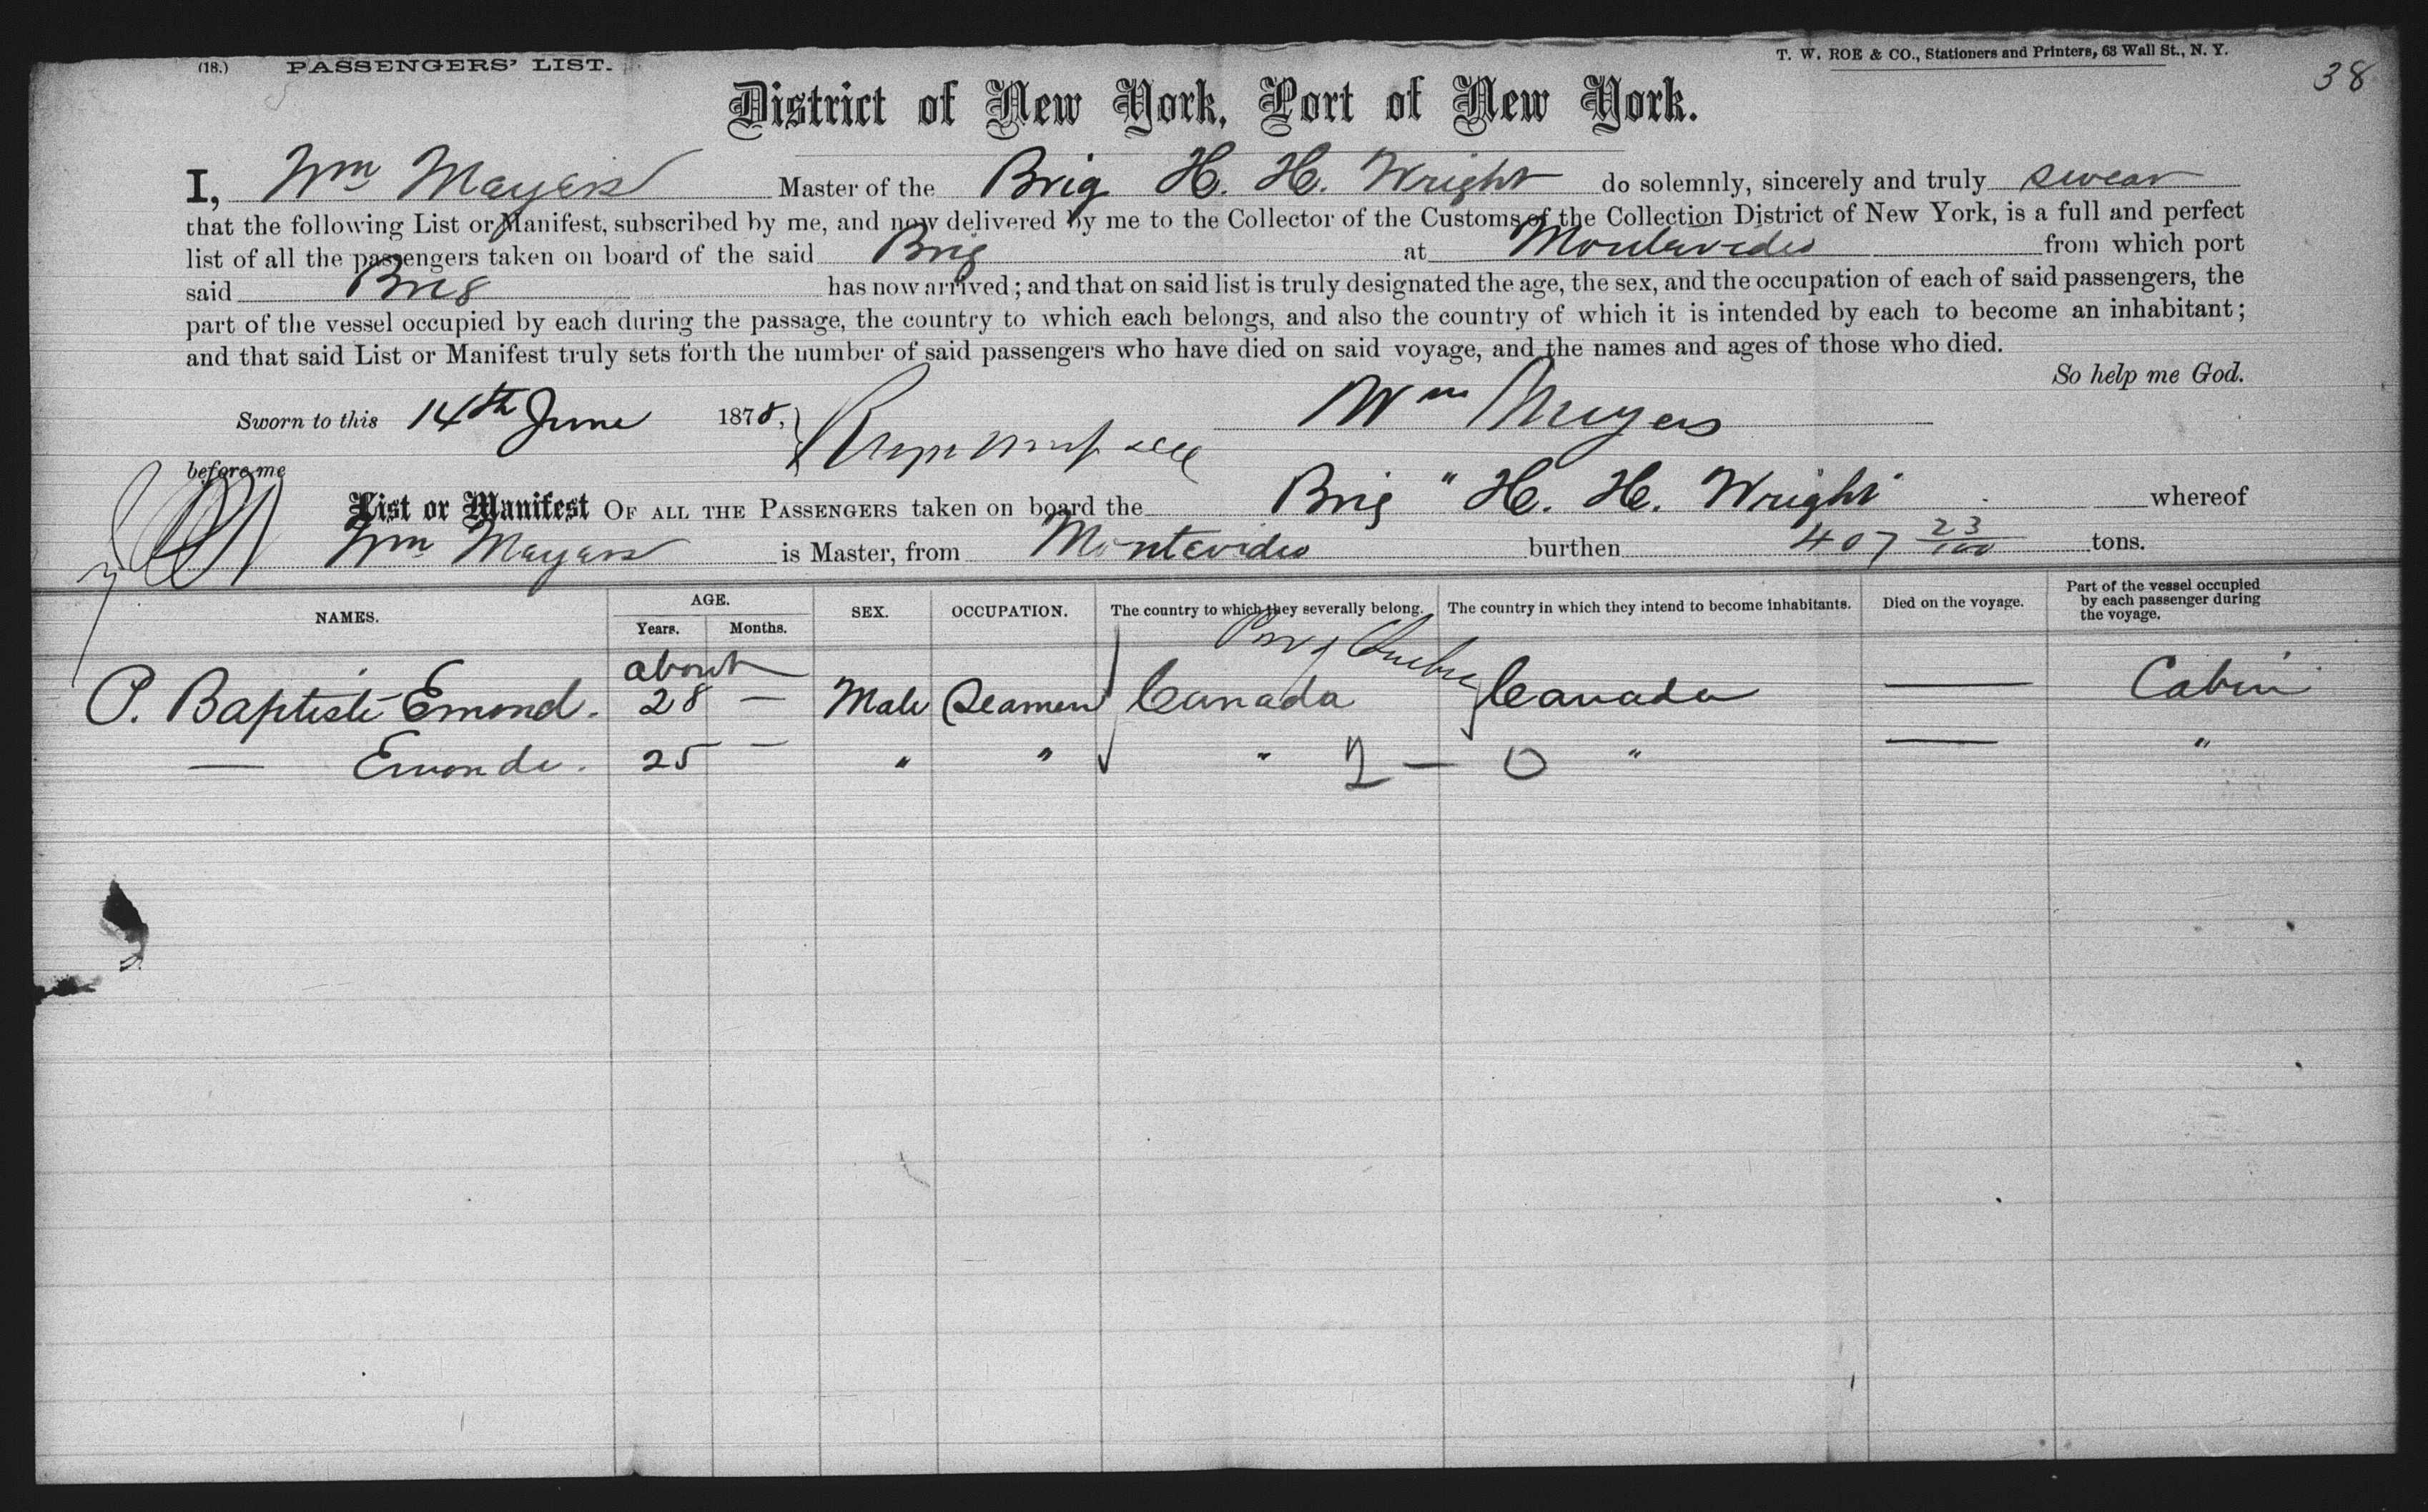 (18.) PASSENGERS' LIST.
T. W. ROE & CO., Stationers and Printers, 63 Wall St., N. Y.
38
District of New York, Port of New York.
I, Wm Mayers Master of the Brig H. H. Wright do solemnly, sincerely and truly swear
that the following List or Manifest, subscribed by me, and now delivered by me to the Collector of the Customs of the Collection District of New York, is a full and perfect
list of all the passengers taken on board of the said Brig at Montevideo from which port
said Brig has now arrived; and that on said list is truly designated the age, the sex, and the occupation of each of said passengers, the
part of the vessel occupied by each during the passage, the country to which each belongs, and also the country of which it is intended by each to become an inhabitant;
and that said List or Manifest truly sets forth the number of said passengers who have died on said voyage, and the names and ages of those who died.
So help me God.
Sworn to this 14th June 1878, Wm Mayers
before me
List or Manifest OF ALL THE PASSENGERS taken on board the Brig "H. H. Wright" whereof
Wm Mayers is Master, from Montevideo burthen 407 23/100 tons.
NAMES. AGE. Years. Months. SEX. OCCUPATION. The country to which they severally belong. The country in which they intend to become inhabitants. Died on the voyage. Part of the vessel occupied by each passenger during the voyage.
about Prov of Quebec
P. Baptiste Emond. 28 — Male Seamen Canada Canada — Cabin
— Emonde. 25 — " " " 2 — 0 " — "